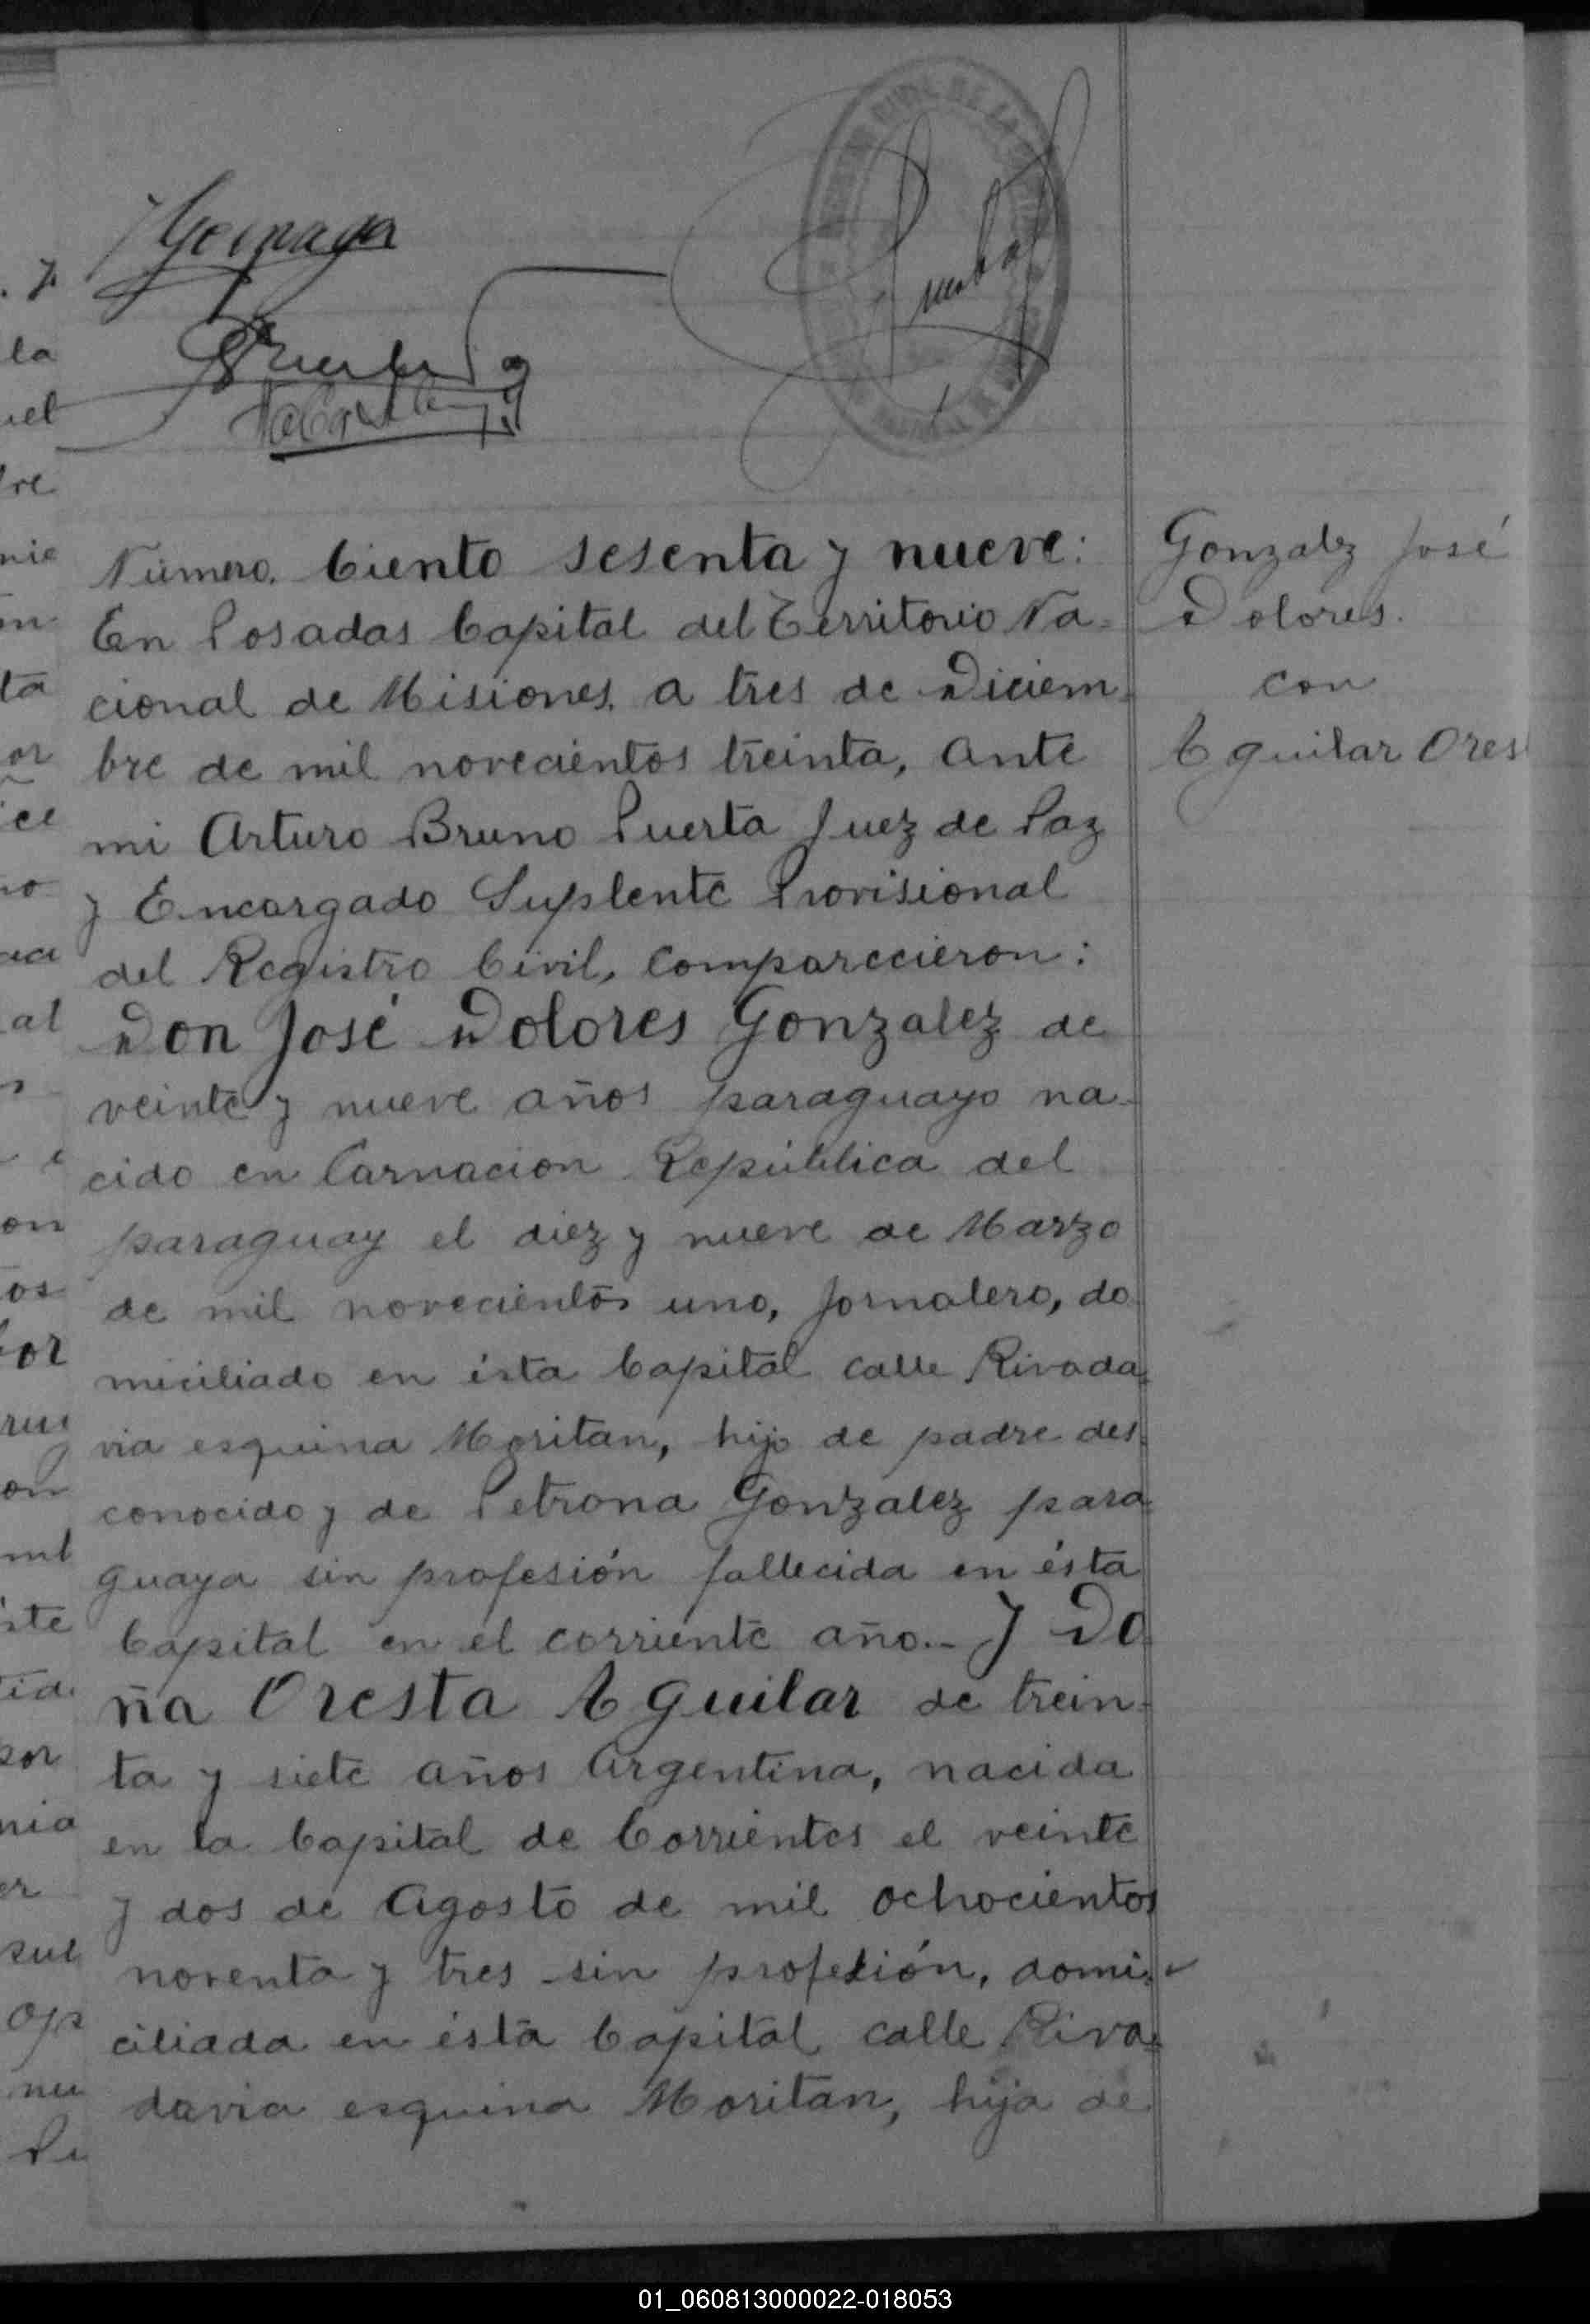 Número Ciento sesenta y nueve:
En Posadas Capital del Territorio Na-
cional de Misiones, a tres de Diciem-
bre de mil novecientos treinta, ante
mi Arturo Bruno Puerta Juez de Paz
y Encargado Suplente Provisional
del Registro Civil, comparecieron:
Don José Dolores Gonzalez de
veinte y nueve años paraguayo na-
cido en Carnacion República del
paraguay el diez y nueve de Marzo
de mil novecientos uno, jornalero, do-
miciliado en ésta Capital calle Rivada-
via esquina Moritan, hijo de padre des-
conocido y de Petrona Gonzalez para-
guaya sin profesión fallecida en ésta
Capital en el corriente año.- Y Do-
ña Oresta Aguilar de trein-
ta y siete años Argentina, nacida
en la Capital de Corrientes el veinte
y dos de Agosto de mil ochocientos
noventa y tres sin profesión, domi-
ciliada en ésta Capital calle Riva-
davia esquina Moritan, hija de
Gonzalez José
Dolores.
con
Aguilar Orest
01_060813000022-018053